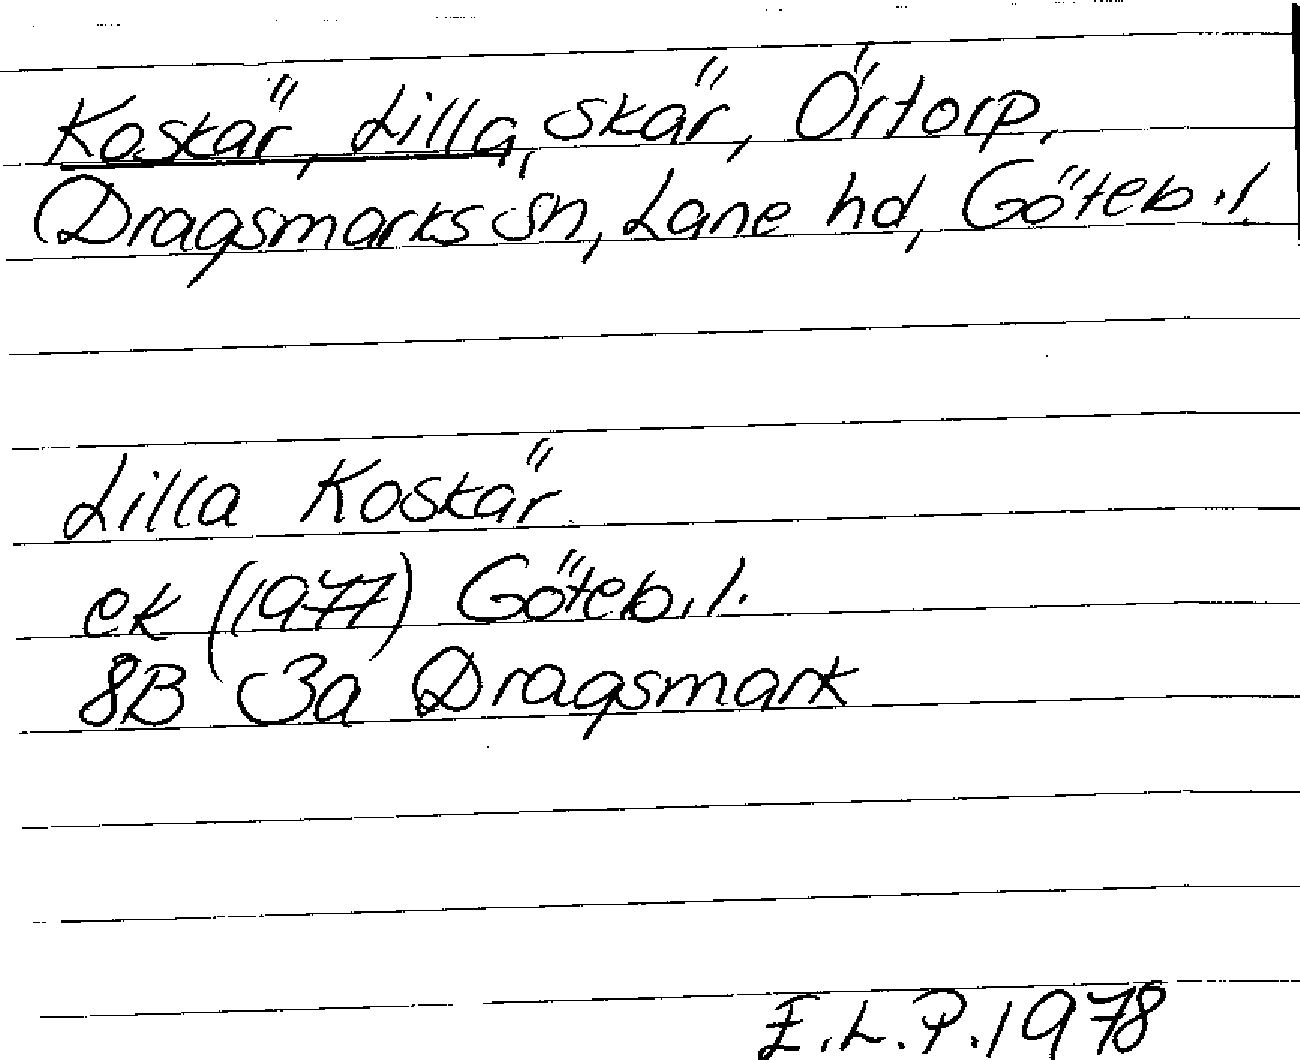 Koskär, Lilla, skär, Örtorp,
Dragsmarks sn, Lane hd, Göteb.l.
Lilla Koskär
ek (1977) Göteb.l.
8B 3a Dragsmark
E.L.P. 1978